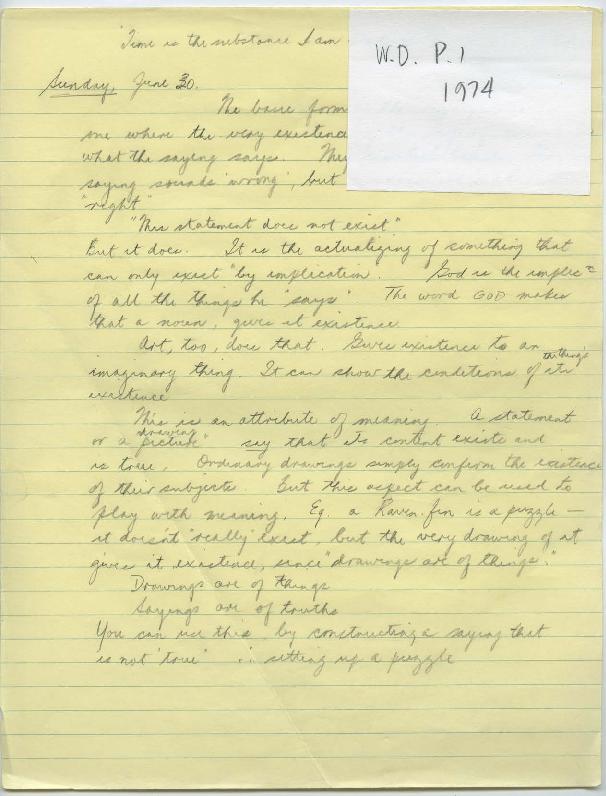 "Time is the substance I am
W.D. P.1
1974
Sunday, June 30.
The basic form
me where the very existence
what the saying says. They
saying sounds 'wrong', but
"right"
"This statement does not exist"
But it does. It is the actualizing of something that
can only exist "by implication. God is the
of all the things he "says" The word GOD makes
that a noun, gives it existence
Art, too, does that. Gives existence to an
imaginary thing. It can show the conditions of its the thing's
existence
This is an attribute of meaning. A statement
or a "picture" drawing say that its content exists and
is true. Ordinary drawings simply confirm the existence
of their subjects. But this aspect can be used to
play with meaning. Eg. a Raven-fin is a puzzle —
it doesn't "really" exist, but the very drawing of it
gives it existence, since "drawings are of things."
Drawings are of things
Sayings are of truths
You can use this by constructing a saying that
is not 'true' ∴ setting up a puzzle